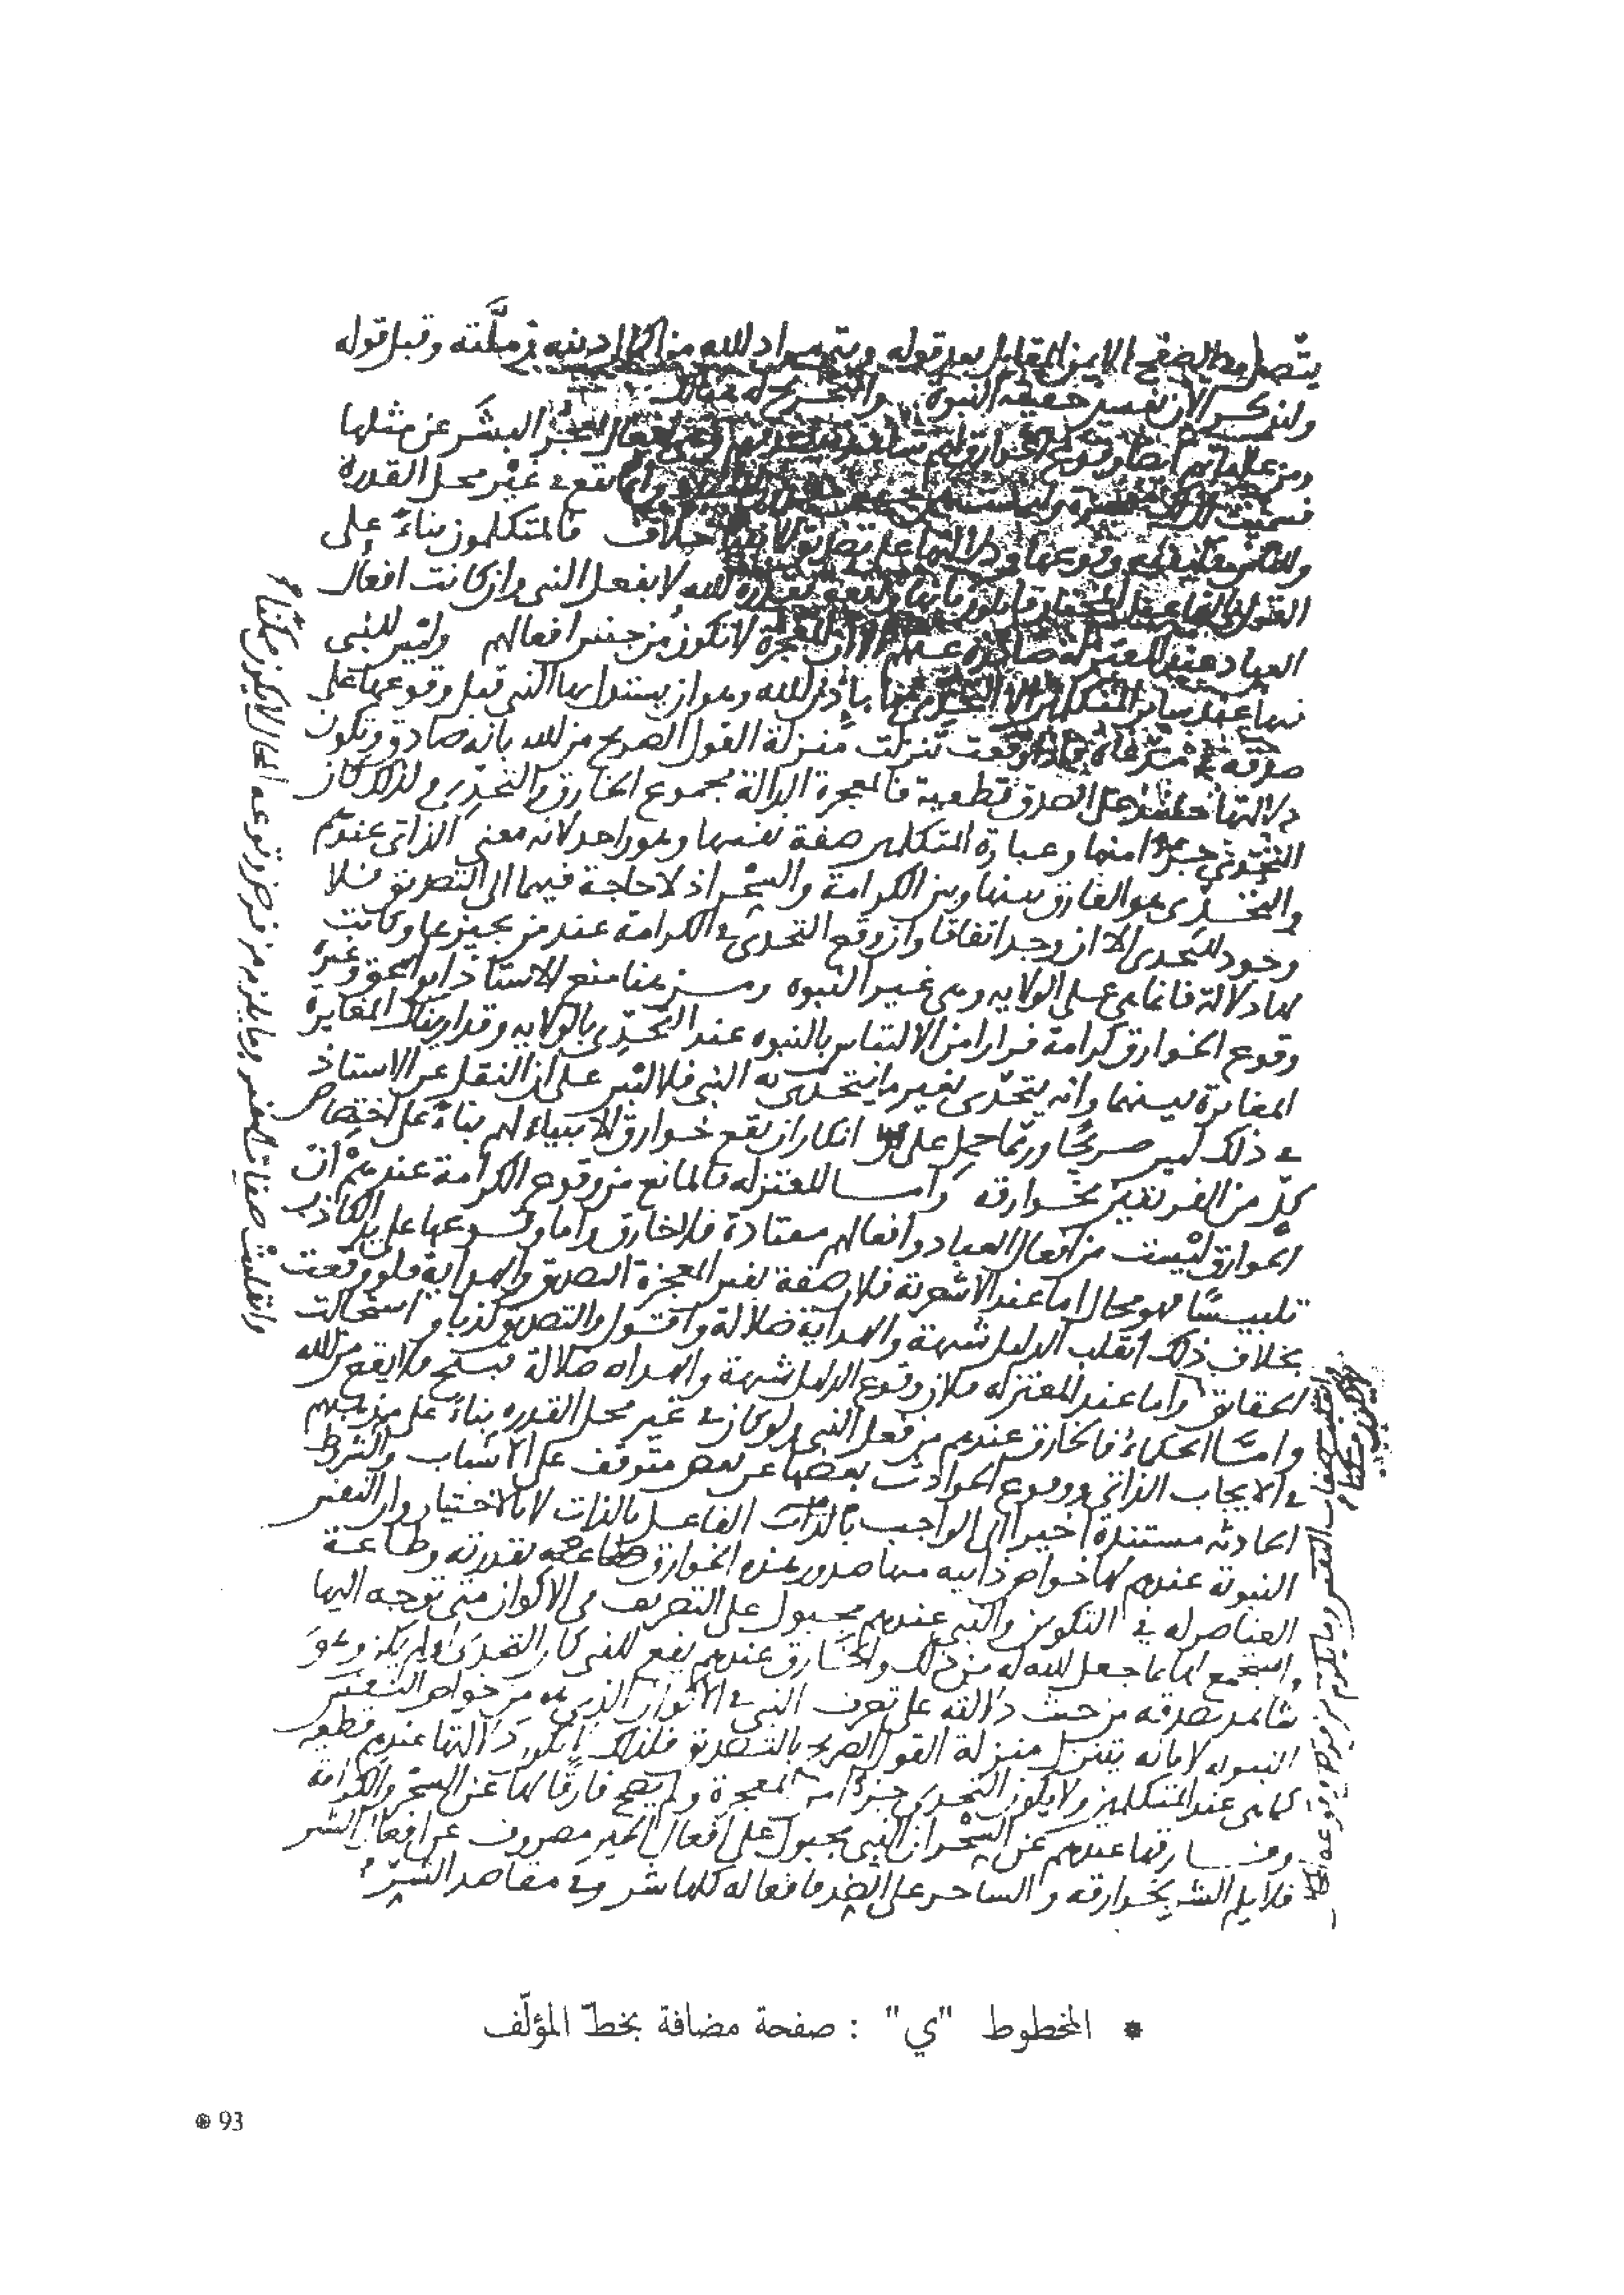 يتّصل بهذا الصفح الايمن المقابل بعد قوله ويتم مراد الله من اكمال دينه في ملّته وقبل قوله
ولنذكر الان تفسير حقيقة النبوة
ومن علاماتهم ايضا وقوع الخوارق لهم افعال يعجز البشر عن مثلها
فسميت بذلك معجزة وليست من جنس وانما تقع في غير محل القدرة
وللناس في كيفية وقوعها ودلالتها على تصديق الانبيا خلاف فالمتكلمون بناءً على
القول بالفاعل المختار قايلون بانها واقعة بقدرة الله لا بفعل النبي وان كانت افعال
العباد عند المعتزلة صادرة عنهم الا ان المعجزة لا تكون من جنس افعالهم وليس للنبي
فيها عند سائر المتكلمين الا التحدي بها بإذن الله وهو ان يستدل بها النبي قبل وقوعها على
صدقه في مدّعاه فاذا وقعت تنزلت منزلة القول الصريح من الله بانه صادق وتكون
دلالتها حينئذ على الصدق قطعية فالمعجزة الدالة بمجموع الخارق والتحدّي ولذلك كان
التحدّي جزءا منها وعبارة المتكلمين صفة نفسها وهو واحد لانه معنى الذاتي عندهم
والتحدّي هو الفارق بينها وبين الكرامة والسِّحر اذ لا حاجة فيهما الى التصديق فلا
وجود للتحدي الا ان وجد اتفاقا وان وقع التحدي في الكرامة عند من يجيزها وكانت
لها دلالة فانما هي على الولايه وهي غير النبوه ومن هنا منع الاستاذ ابو اسحق وغيره
وقوع الخوارق كرامة فرارا من الالتباس بالنبوه عند التحدّي بالولايه وقد اريناك المغايرة
المغايرة بينهما وانه يتحدّى بغير ما يتحدى به النبي فلا لبس على ان النقل عن الاستاذ
في ذلك ليس صريحًا وربّما حمل على انكار ان تقع خوارق الانبياء لهم بناءً على اختصاص
كلّ من الفريقين بخوارقه وأمـا المعتزله فالمانع من وقوع الكرامة عندهم أن
الخوارق ليست من افعال العباد وافعالهم معتادة فلا خارق واما وقوعها على يد الكاذب
تلبيسًا فهو محال اما عند الاشعرية فلان صفة نفس المعجزة التصديق والهداية فلو وقعت
بخلاف ذلك انقلب الدليل شبهة والهداية ضلالة وأقول والتصديق كذبا واستحالت
الحقايق واما عند المعتزله فلان وقوع الدليل شبهة والهداىه ضلالة قبيح فلا يقع من الله
وامـّا الحكماءُ فالخارق عندهم من فعل النبي ولو كان في غير محل القدره بناءً على مذهبهم
في الايجاب الذاتي ووقوع الحوادث بعضها عن بعض متوقف على الاسباب والشروط
الحادثه مستندة أخيرا الى الواجب بالذات الفاعل بالذات لا بالاختيار وان النفس
النبوية عندهم لها خواص ذاتيه منها صدور هذه الخوارق بقدرته وطاعـة
العناصر له في التكوين والنبي عندهم مجبول على التصريف في الاكوان متى توجه اليها
واستجمع لها بما جعل الله له من ذلك والخارق عندهم يقع للنبي كان للتحدّي أو لم يكن وهوَ
شاهد بصدقه من حيث دلالته على تصرف النبي في الأكوان الذي هو من خواص النـفس
النبويه لا بانه يتنزل منزلة القول الصريح بالتصديق فلذلك لا تكون دلالتها عندهم قطعيه
كما هي عند المتكلمين ولا يكون التحدي جزءًا من المعجزة ولم يصح فارقًا لها عن السحر والكرامة
وفـارقها عندهم عن السِّحر ان النبي مجبول على افعال الخير مصروف عن افعال الشر
فلا يلم الشر بخوارقه والساحر على الضِد فافعاله كلها شر وفي مقاصد الشرِّ
وانقلبت صفات النفس وما يلزم من فرض وقوعه المحال لا يكون ممكنًا
* المخطوط "ي" : صفحة مضافة بخطّ المؤلّف
93